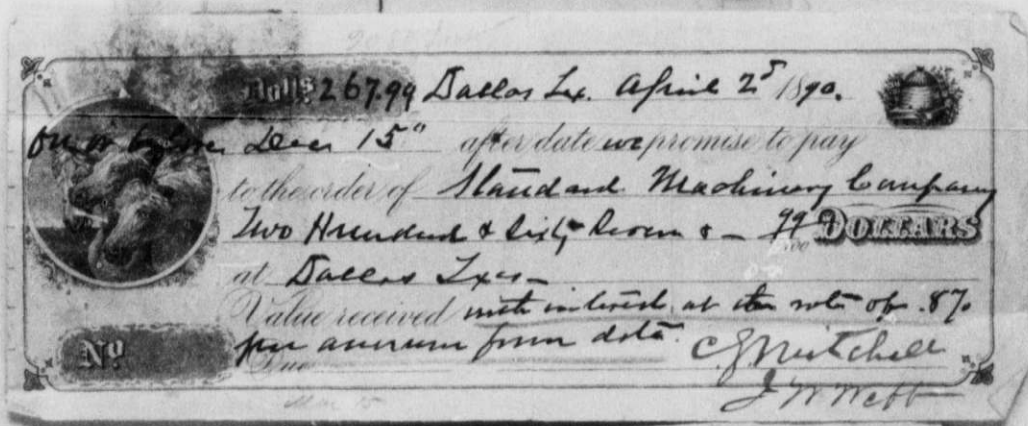 Dolls 267.99 Dallas Tex. April 25 1890.
on or before Dec 15" after date we promise to pay
to the order of Standard Machinery Company
Two Hundred & Sixty Seven & — 99/100 DOLLARS
at Dallas Texas
Value received with interest at the rate of 8%
No. per annum from date.
Due
C J Mitchell
J W Webb